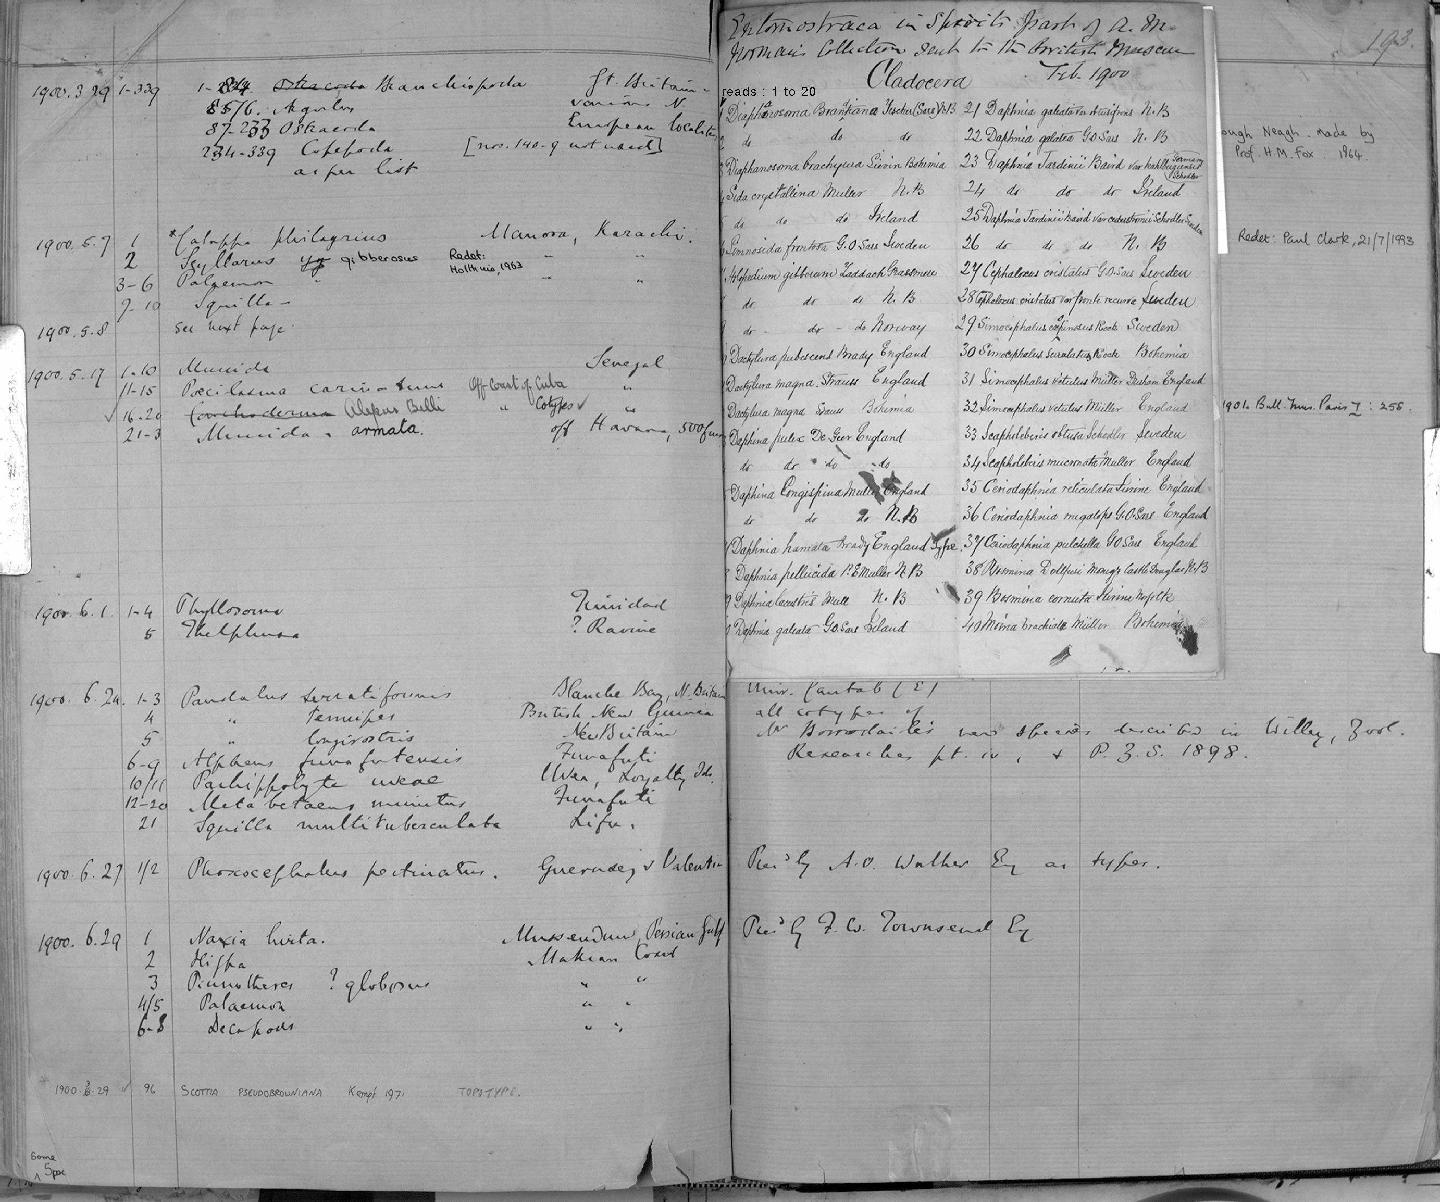 1900.3.29 1-339 1-84 Branchiopoda Gt. Britain
85/6. Argulus various N
87-233 Ostracoda European localities
234-339 Copepoda [nos. 140-9 not used]
as per list
1900.5.7 1 *Calappa philargius Manora, Karachi.
2 Scyllarus gibberosus Redet: Holthuis, 1963 " "
3-6 Palaemon " " "
7-10 Squilla
1900.5.8 see next page
1900.5.17 1-10 Munida Senegal
11-15 Poecilasma carinatum Off Coast of Cuba "
✓ 16-20 Conchoderma Alepas Belli " Cotypes ✓ "
21-3 Munida armata. off Havana, 500 fms
1900.6.1. 1-4 Phyllosoma Trinidad
5 Thelphusa ? Ravine
1900.6.24. 1-3 Pandalus serratifrons Blanche Bay, N. Britain
4 " tenuipes British New Guinea
5 " longirostris New Britain
6-9 Alpheus funafutensis Funafuti
10/11 Parhippolyte uveae Uvea, Loyalty Ids.
12-20 Metabetaeus minutus Funafuti
21 Squilla multituberculata Lifu.
1900.6.27 1/2 Phoxocephalus pectinatus. Guernsey & Valentia
1900.6.29 1 Naxia hirta. Mussendum, Persian Gulf
2 Hippa Makran Coast
3 Pinnotheres ? globosus " "
4/5 Palaemon " "
6-8 Decapods " "
1900.3.29 ✓ 96 SCOTTIA PSEUDOBROWNIANA Kempf 1971 TOPOTYPE.
Some
Spec
193.
Entomostraca in Spirits part of A. M.
Norman's Collection sent to the British Museum
Cladocera Feb 1900
reads : 1 to 20
Diaphanosoma Brandtiana Fischer (Sars) N.B
do do do
Diaphanosoma brachyura Lievin Bohemia
Sida crystallina Muller N. B
do do do Ireland
Limnosida frontosa G.O.Sars Sweden
Holopedium gibberum Zaddach Grasmere
do do do N. B
do - do - do Norway
Dactylura pubescens Brady England
Dactylura magna Strauss England
Dactylura magna Strauss Bohemia
Daphina pulex De Geer England
do do do do
Daphina longispina Muller England
do do do N. B
Daphnia hamata Brady England Type.
Daphnia pellucida P.E Muller N B
Daphnia lacustris Mull N. B
Daphnia galeata G.O.Sars Ireland
21 Daphnia galeata var obtusifrons N. B
22 Daphnia galeata G.O Sars N. B
23 Daphnia Jardinii Baird var kahlbergiensis Schodler Germany
24 do do do Ireland
25 Daphnia Jardinii Baird var cederstromii Schodler Sweden
26 do do do N. B
27 Cephaloxus cristatus G.O Sars Sweden
28 Cephaloxus cristatus var fronte recurva Sweden
29 Simocephalus expinosus Koch Sweden
30 Simocephalus serrulatus Koch Bohemia
31 Simocephalus vetulus Müller Durham England
32 Simocephalus vetulus Müller England
33 Scapholeberis obtusa Schodler Sweden
34 Scapholeberis mucronata Müller England
35 Ceriodaphnia reticulata Jurine England
36 Ceriodaphnia megalops G.O.Sars England
37 Ceriodaphnia pulchella G O Sars England
38 Bosmina Dollfusi Moniez Castle Douglas N. B
39 Bosmina cornuta Jurine Norfolk
40 Moina brachiata Müller Bohemia
ough Neagh - made by
Prof. H.M. Fox 1964.
Redet: Paul Clark, 21/7/1993
1901. Bull. Mus. Paris I : 256.
Univ. Cantab (E)
all cotypes of
Mr Borradaile's new species described in Willey, Zool.
Researches pt. iv, & P. Z. S. 1898.
Pres'd by A. O. Walker Esq as types.
Pres'd by F. W. Townsend Esq